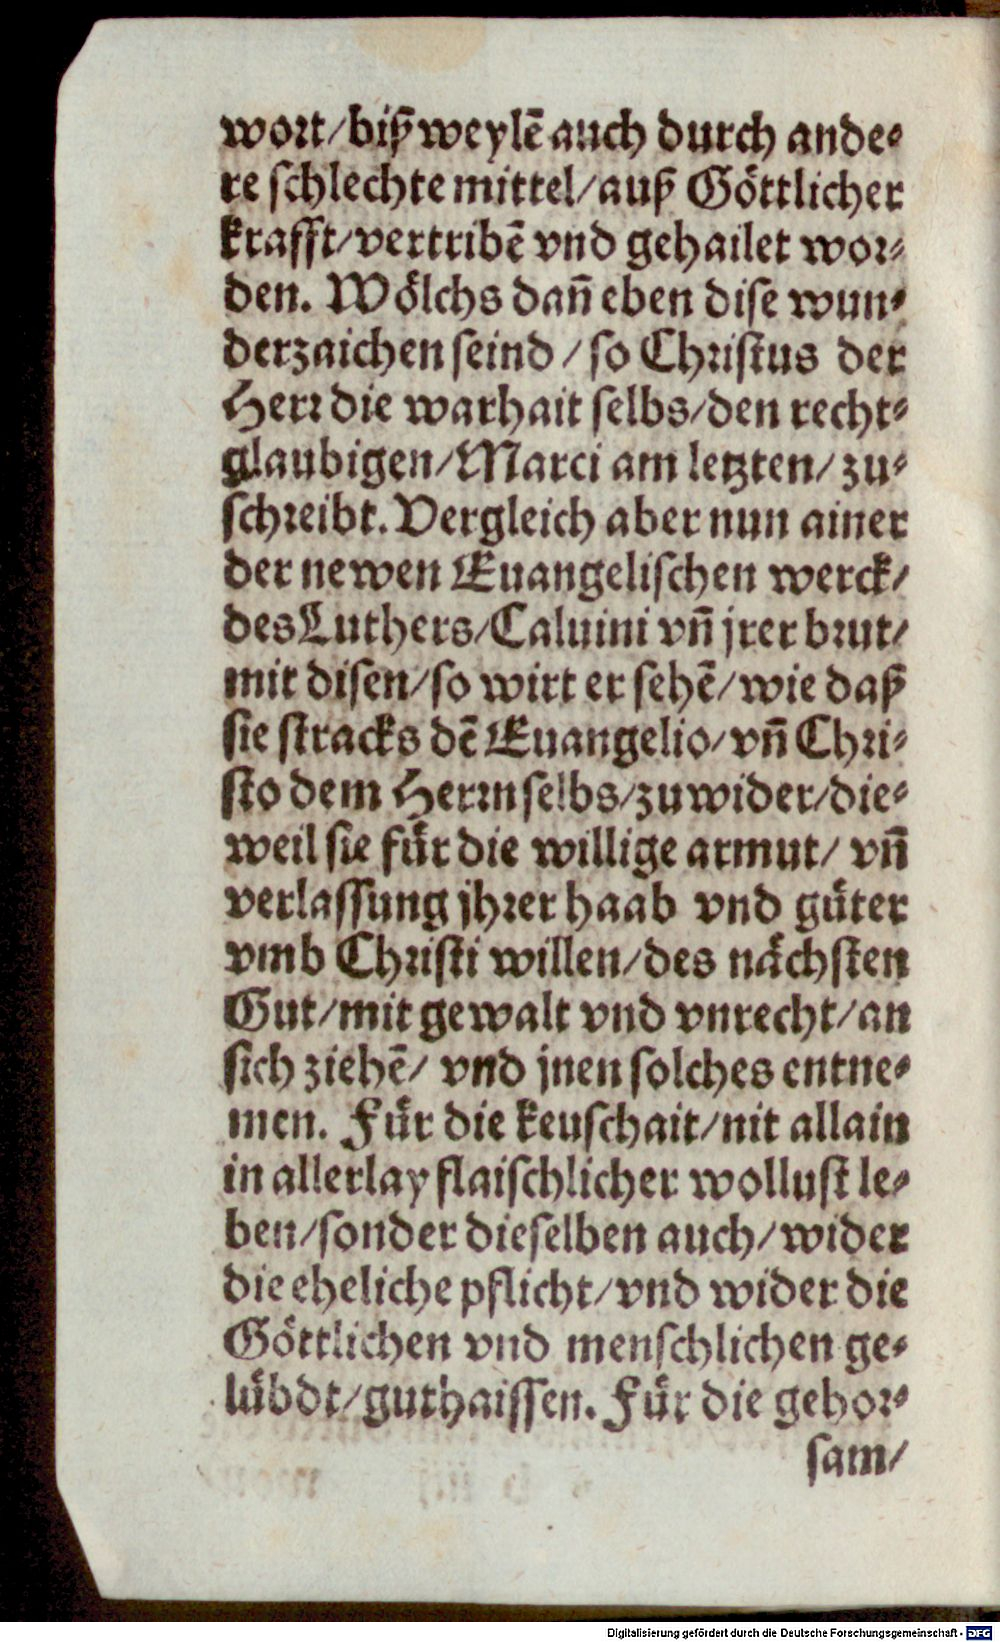 wort/biß weylē auch durch ande-
re schlechte mittel/auß Göttlicher
krafft/vertribē vnd gehailet wor-
den. Wölchs dañ eben dise wun-
derzaichen seind / so Christus der
Herr die warhait selbs/den recht-
glaubigen/Marci am letzten/zu-
schreibt. Vergleich aber nun ainer
der newen Euangelischen werck/
des Luthers/Caluini vñ jrer brut/
mit disen/so wirt er sehē/wie daß
sie stracks dē Euangelio/vñ Chri-
sto dem Herrn selbs/zuwider/die-
weil sie für die willige armut/ vñ
verlassung jhrer haab vnd güter
vmb Christi willen/des nächsten
Gut/mit gewalt vnd vnrecht/an
sich ziehē/ vnd jnen solches entne-
men. Für die keuschait/nit allain
in allerlay flaischlicher wollust le-
ben/sonder dieselben auch/wider
die eheliche pflicht/vnd wider die
Göttlichen vnd menschlichen ge-
lübdt/guthaissen. Für die gehor-
sam/
Digitalisierung gefördert durch die Deutsche Forschungsgemeinschaft - DFG